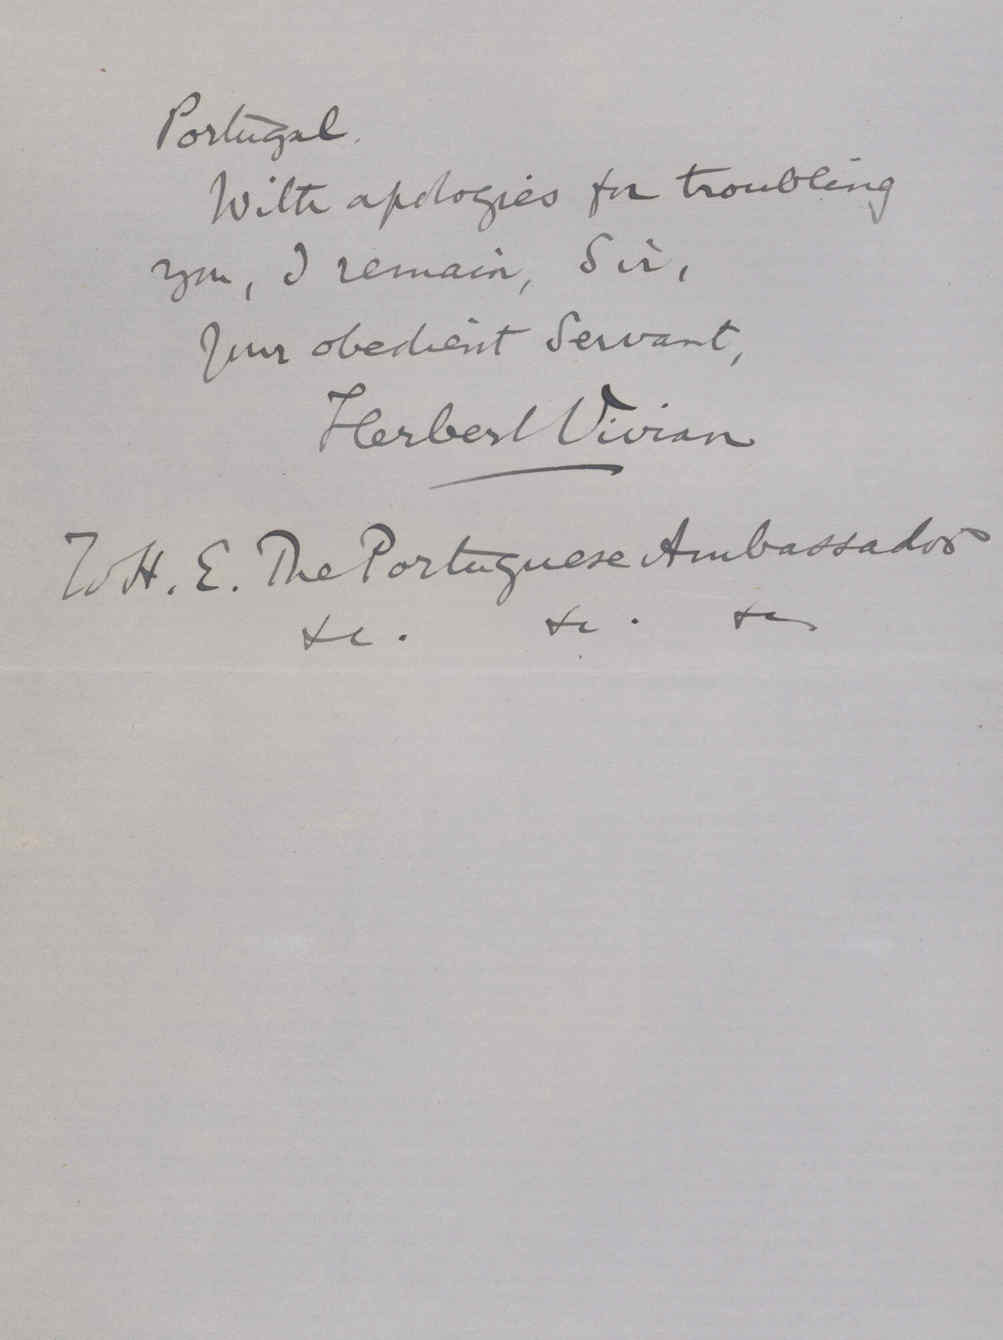 Portugal.
With apologies for troubling
you, I remain, Sir,
Your obedient Servant,
Herbert Vivian
To H. E. The Portuguese Ambassador
&c. &c. &c.